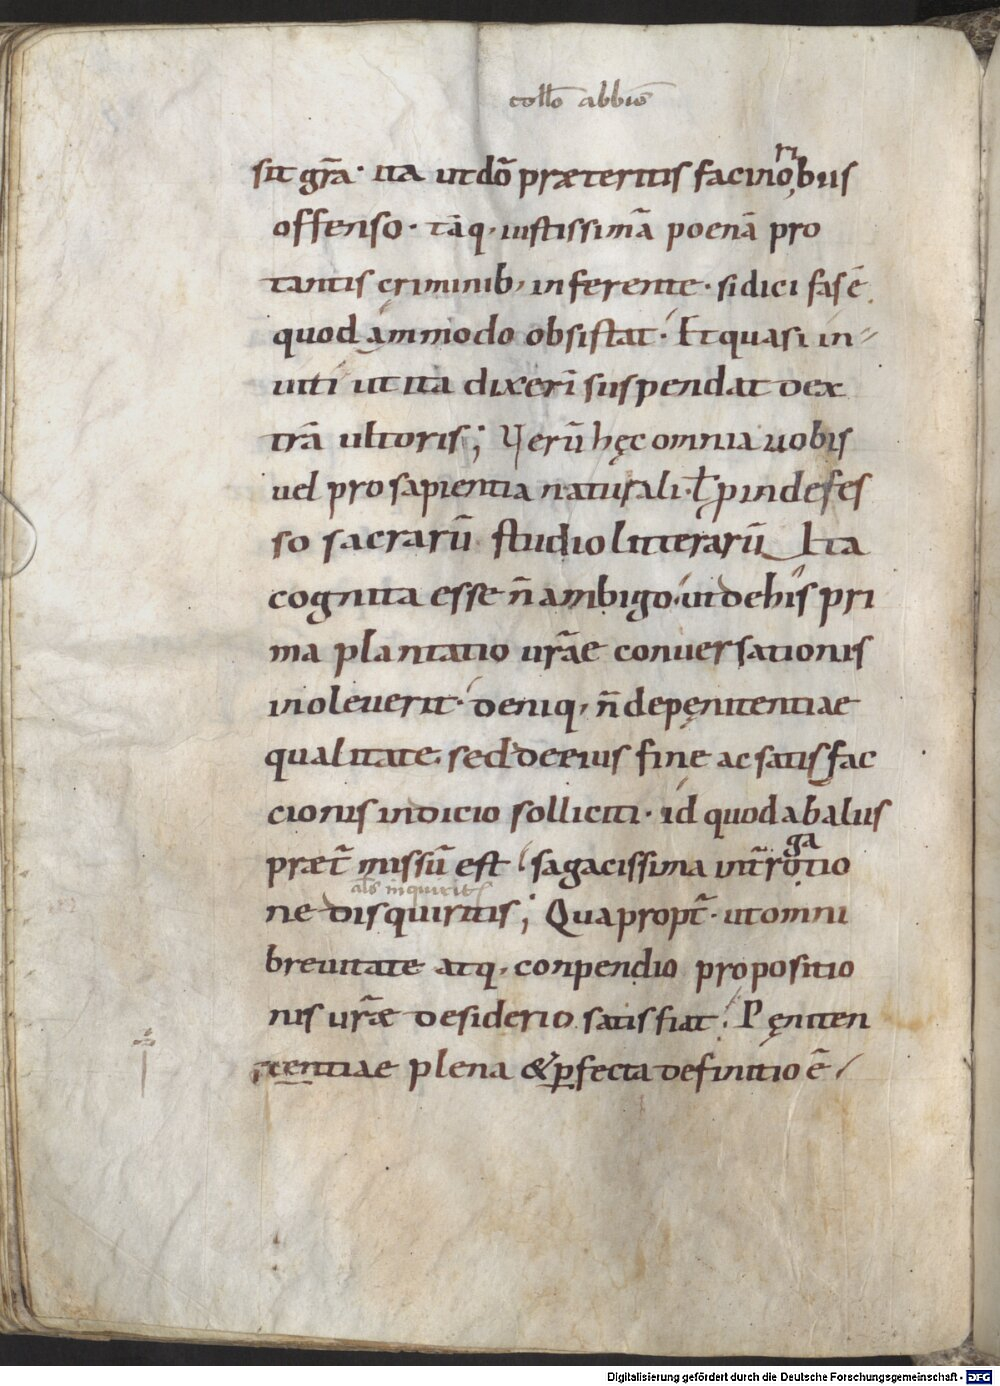 collo abbis
sit gr̄a · ita ut do̅ præteritis facinoribus
offenso · tāq · iustissimā poenā pro
tantis criminib, inferente · si dici fas ē
quodāmmodo obsistat · Et quasi in-
uiti ut ita dixeri̅ suspendat dex
trā ultoris; Verū hęc omnia uobis
uel pro sapientia naturali · ł p indefes
so sacrarū studio litterarū Ita
cognita esse n̄ ambigo · ut de his pri
ma plantatio ur̄ae conuersationis
inoleuerit · deniq, n̄ de pęnitentiae
qualitate · sed de eius fine ac satisfac
cionis indicio solliciti · id quod ab aliis
præt̄ missū est sagacissima int̄rogatio
als inquiritis
ne disquiritis; Quapropt̄ · ut omni
breuitate atq, conpendio propositio
nis ur̄æ desiderio satisfiat · Pęniten
tentiae plena & perfecta definitio ē
Digitalisierung gefördert durch die Deutsche Forschungsgemeinschaft - DFG